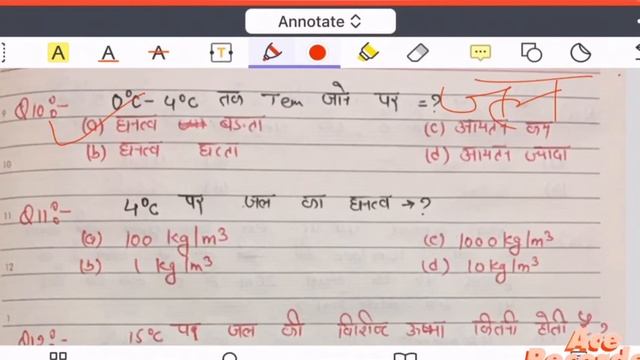 Annotate
A A A T
9
Q10:- 0°C - 4°C तक Tem जाने पर = ? जल
(a) घनत्व बढ़ता (c) आयतन कम
(b) घनत्व घटता (d) आयतन ज्यादा
10
11 Q11:- 4°C पर जल का घनत्व → ?
(a) 100 kg/m³ (c) 1000 kg/m³
12 (b) 1 kg/m³ (d) 10 kg/m³
1
Q12:- 15°C पर जल की विशिष्ट ऊष्मा कितनी होती है ?
Ace